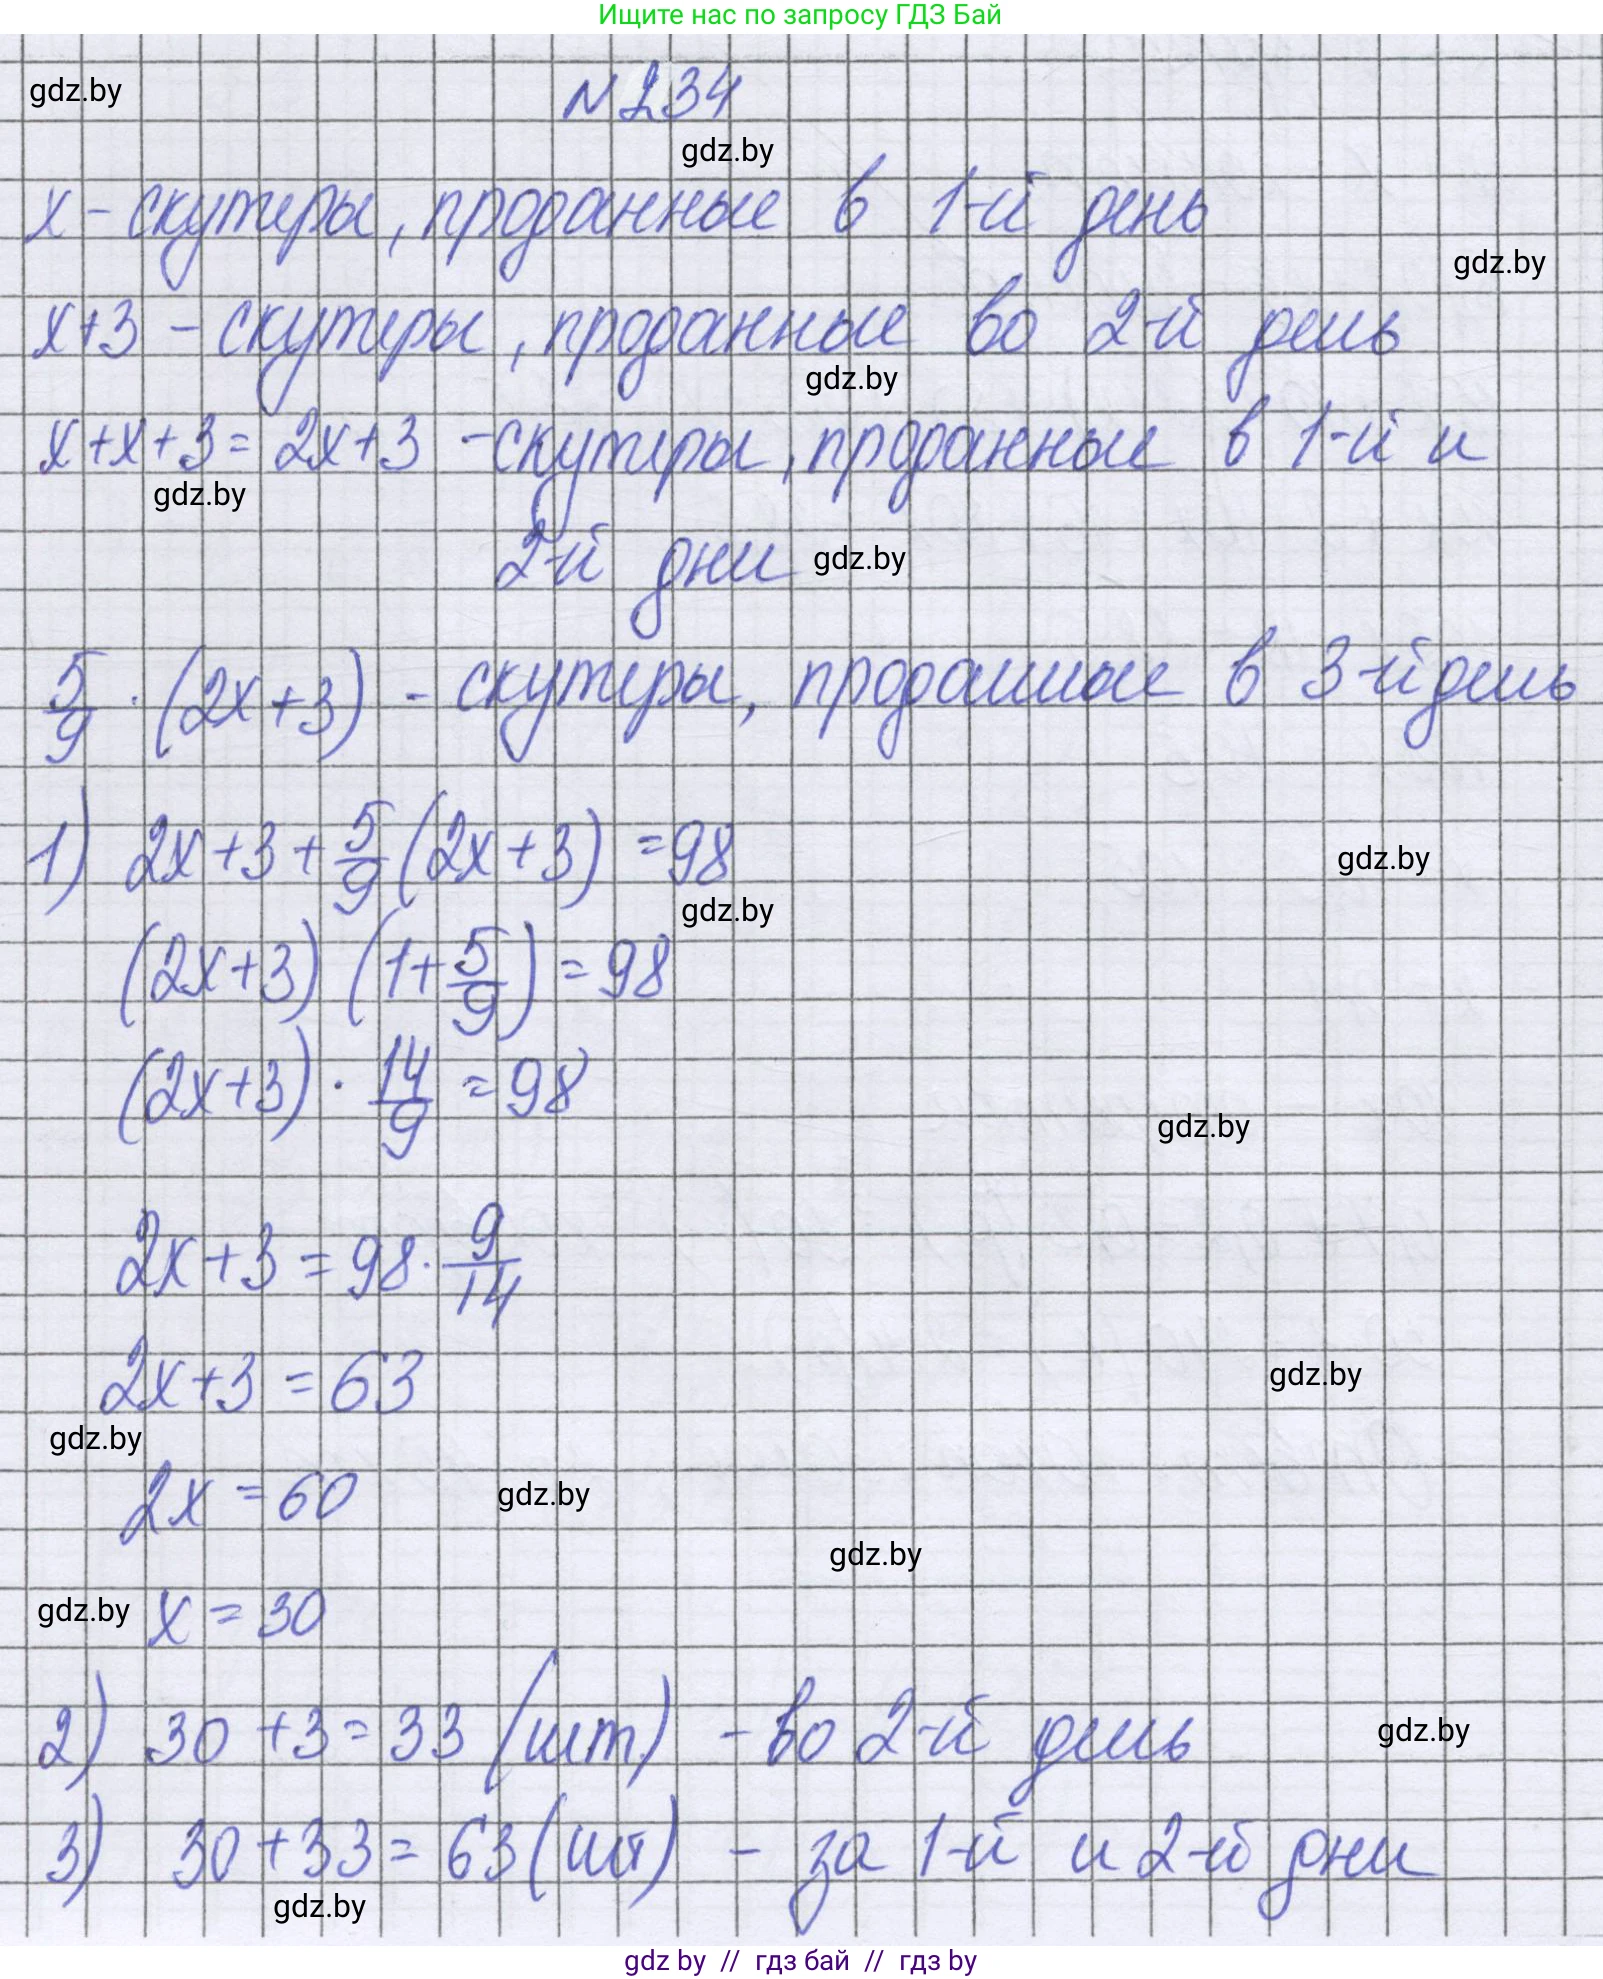 Ищите нас по запросу ГДЗ Бай
gdz.by
N 234
gdz.by
x - скутеры, проданные в 1-й день
gdz.by
x+3 - скутеры, проданные во 2-й день
gdz.by
x+x+3 = 2x+3 - скутеры, проданные в 1-й и
gdz.by
2-й дни gdz.by
5/9 · (2x+3) - скутеры, проданные в 3-й день
1) 2x+3+5/9(2x+3) = 98
gdz.by
gdz.by
(2x+3)(1+5/9) = 98
(2x+3) · 14/9 = 98
gdz.by
2x+3 = 98 · 9/14
2x+3 = 63
gdz.by
gdz.by
2x = 60
gdz.by
gdz.by
gdz.by x = 30
2) 30 +3 = 33 (шт.) - во 2-й день
gdz.by
3) 30+33 = 63 (шт) - за 1-й и 2-й дни
gdz.by
gdz by // гдз бай // гдз by